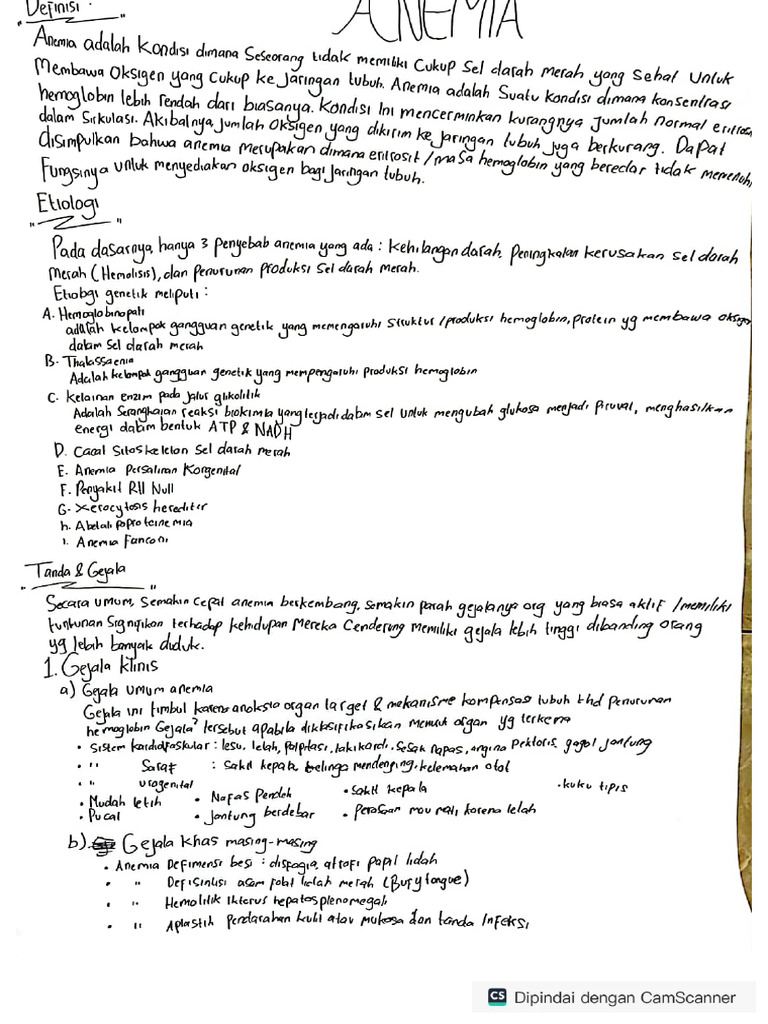 Definisi.
ANEMIA
Anemia adalah Kondisi dimana Seseorang tidak memiliki Cukup Sel darah merah yang Sehat Untuk
Membawa Oksigen yang Cukup ke jaringan tubuh. Anemia adalah Suatu Kondisi dimana konsentrasi
hemoglobin lebih rendah dari biasanya. Kondisi Ini mencerminkan kurangnya Jumlah normal eritrosi
dalam Sirkulasi. Akibatnya, Jumlah Oksigen yang dikirim ke jaringan tubuh juga berkurang. Dapat
disimpulkan bahwa anemia merupakan dimana eritrosit / masa hemoglobin yang beredar tidak memenuhi
Fungsinya untuk menyediakan oksigen bagi Jaringan tubuh.
Etiologi
Pada dasarnya, hanya 3 penyebab anemia yang ada : kehilangan darah, Peningkatan kerusakan sel darah
Merah (Hemolisis), dan penurunan produksi sel darah merah.
Etiologi genetik meliputi :
A. Hemoglobinopati
adalah kelompok gangguan genetik yang memengaruhi Struktur / produksi hemoglobin, protein yg membawa oksigen
dalam sel darah merah
B. Thalassaemia
Adalah kelompok gangguan genetik yang mempengaruhi produksi hemoglobin
C. Kelainan enzim pada jalur glikolitik
Adalah Serangkaian reaksi biokimia yang terjadi dalam sel Untuk mengubah glukosa menjadi piruvat, menghasilkan
energi dalam bentuk ATP & NADH
D. Cacat Sitoskeleton Sel darah merah
E. Anemia Persaliran Kongenital
F. Penyakit RH Null
G. Xerocytosis herediter
h. Abetalipoproteinemia
i. Anemia Fanconi
Tanda & Gejala
Secara umum, Semakin Cepat anemia berkembang, semakin parah gejalanya org yang biasa aktif / memiliki
tuntunan Signifikan terhadap kehidupan Mereka Cenderung memiliki gejala lebih tinggi dibanding orang
yg lebih banyak duduk.
1. Gejala klinis
a) Gejala umum anemia
Gejala ini timbul karena anoksia organ target & mekanisme kompensasi tubuh thd penurunan
hemoglobin Gejala² tersebut apabila diklasifikasikan menurut organ yg terkena
• Sistem kardiofaskular : lesu, lelah, palpitasi, takikardi, Sesak napas, angina pektoris, gagal jantung
• " Saraf : sakit kepala telinga mendenging, kelemahan otot
• " urogenital
• kuku tipis
• Mudah letih • Nafas Pendek • sakit kepala
• Pucat • Jantung berdebar • Perasaan mau mati karena lelah
b). Gejala khas masing-masing
• Anemia Defimensi besi : disfagia, atrofi papil lidah
• " Defisinisi asam folat lidah merah (Bufy tongue)
• " Hemolitik Ikterus hepatosplenomegali
• " Aplastik perdarahan kulit atau mukosa dan tanda Infeksi
CS Dipindai dengan CamScanner